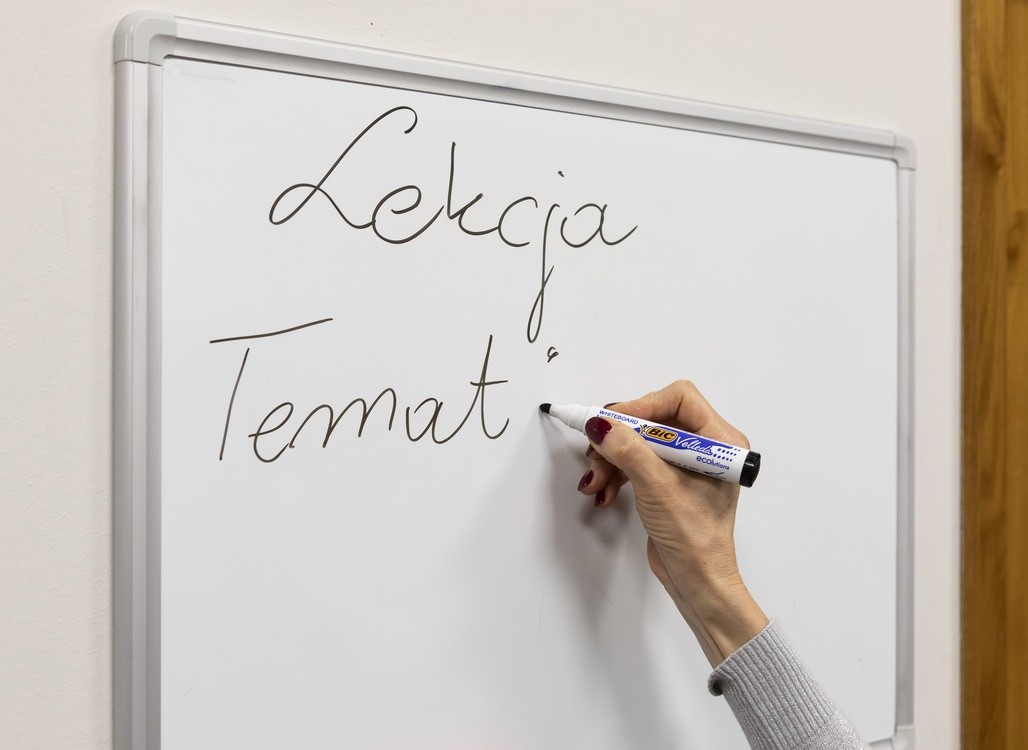 Lekcja
Temat:
WHITEBOARD
BIC Velleda
ecolutions